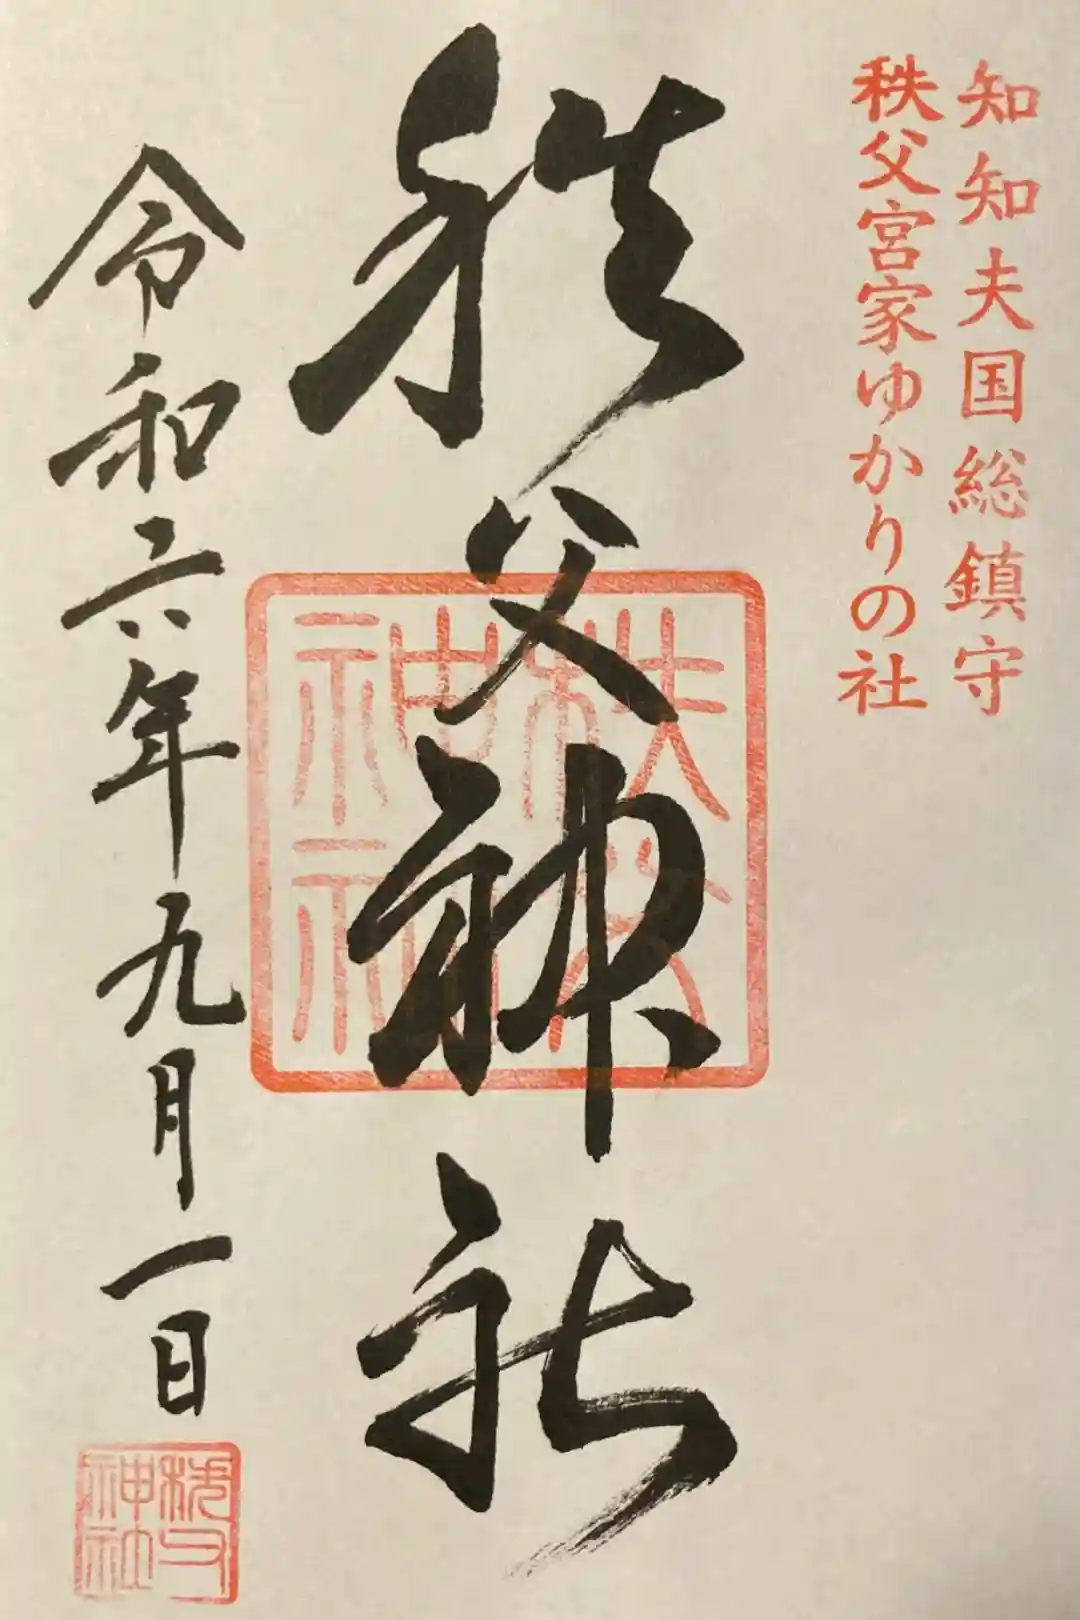 知知夫国総鎮守
秩父宮家ゆかりの社
秩父神社
秩父
神社
令和六年九月一日
秩父
神社